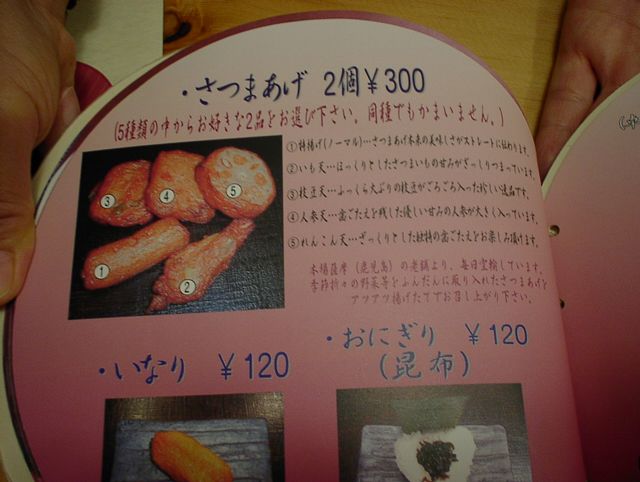 ・さつまあげ 2個¥300
(5種類の中からお好きな2品をお選び下さい。同種でもかまいません。)
①特揚げ(ノーマル)…さつまあげ本来の美味しさがストレートに伝わります。
②いも天…ほっくりとしたさつまいもの甘みがぎっしりつまっています。
③枝豆天…ふっくら大ぶりの枝豆がごろごろ入った珍しい逸品です。
④人参天…歯ごたえを残した優しい甘みの人参が大きく入っています。
⑤れんこん天…ざっくりとした独特の歯ごたえをお楽しみ頂けます。
本場薩摩(鹿児島)の老舗より、毎日空輸しています。
季節折々の野菜等をふんだんに取り入れたさつまあげを
アツアツ揚げたてでお召し上がり下さい。
③
④
⑤
①
②
・いなり ¥120
・おにぎり ¥120
(昆布)